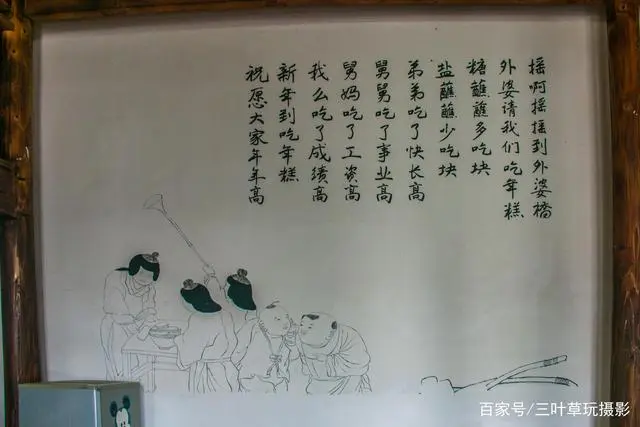 摇啊摇摇到外婆桥
外婆请我们吃年糕
糖蘸蘸多吃块
盐蘸蘸少吃块
弟弟吃了快长高
舅舅吃了事业高
舅妈吃了工资高
我么吃了成绩高
新年到吃年糕
祝愿大家年年高
百家号/三叶草玩摄影